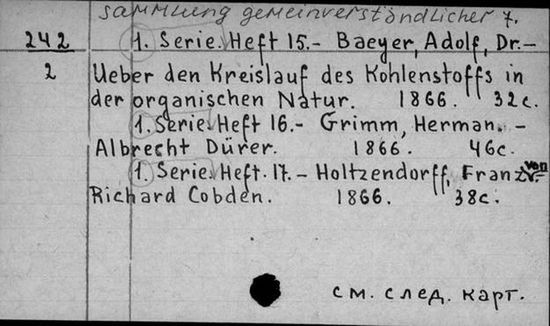 Sammlung gemeinverständlicher 7.
242 1. Serie. Heft 15.- Baeyer, Adolf, Dr.-
2 Ueber den Kreislauf des Kohlenstoffs in
der organischen Natur. 1866. 32c.
1. Serie. Heft 16.- Grimm, Herman. -
Albrecht Dürer. 1866. 46c.
1. Serie. Heft. 17.- Holtzendorff, Franz von.-
Richard Cobden. 1866. 38c.
см. след. карт.